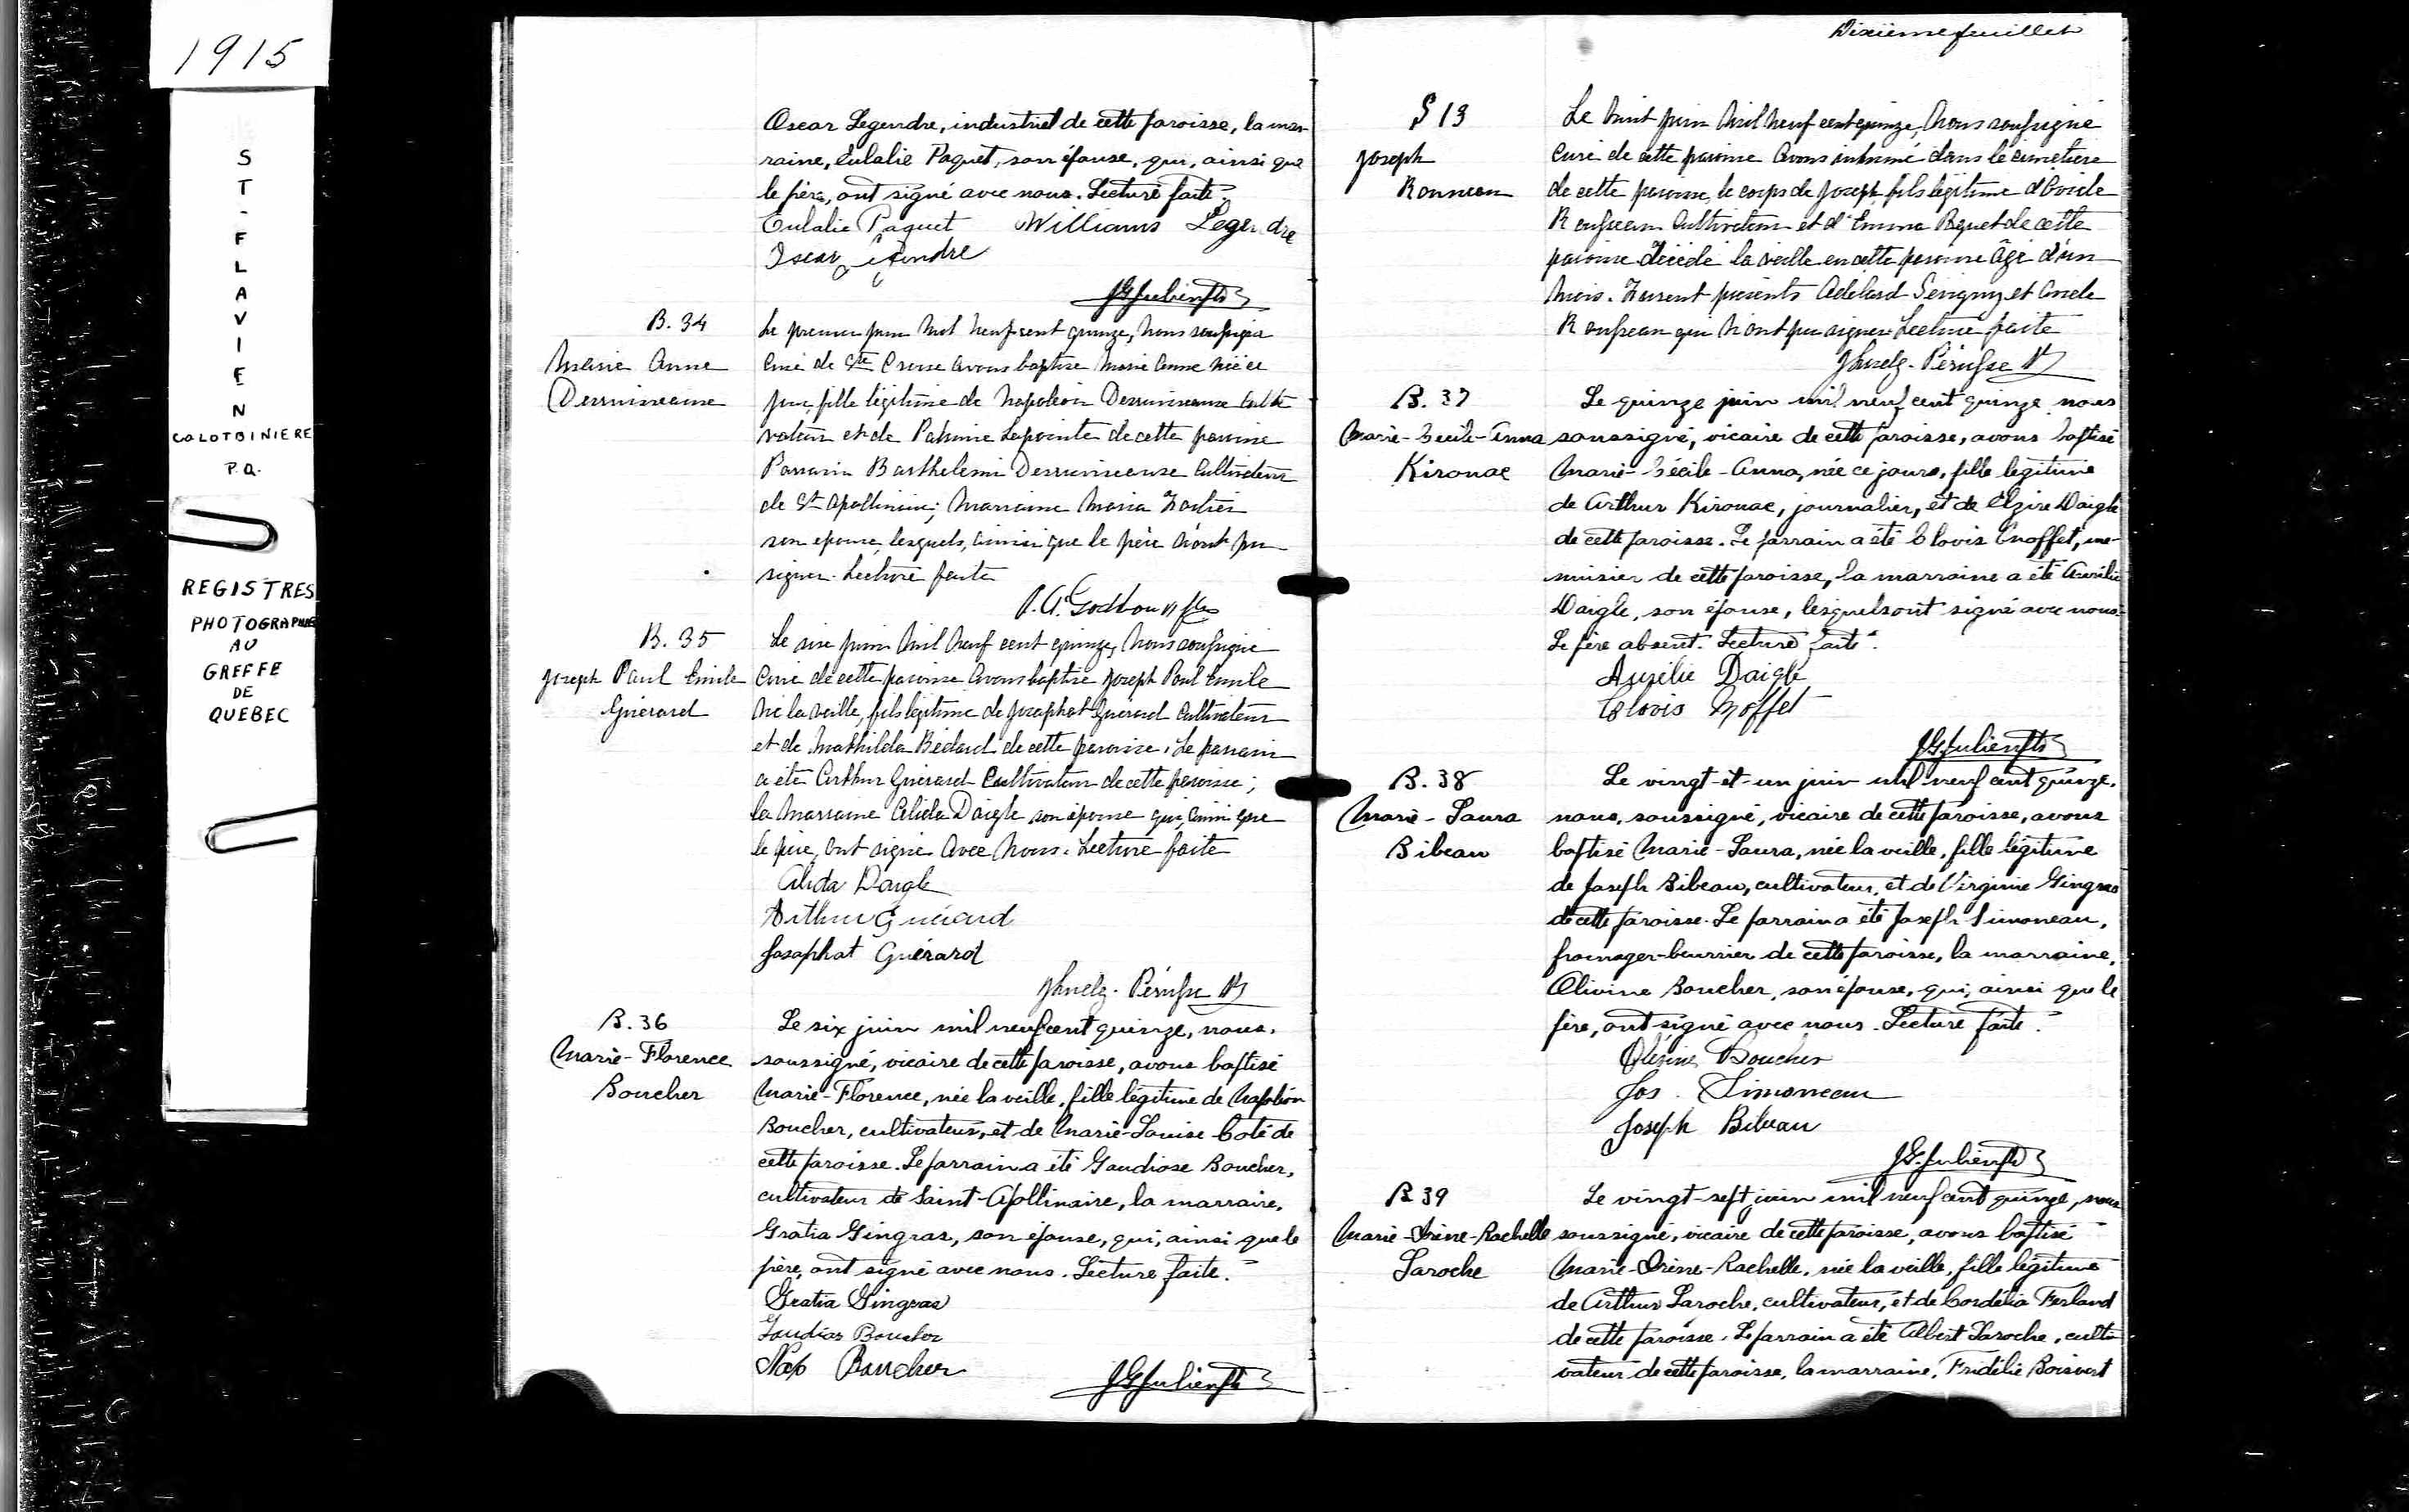 1915
ST-FLAVIEN
COLOTBINIERE
P.Q.
REGISTRES
PHOTOGRAPHIE
AU
GREFFE
DE
QUEBEC
Oscar Legendre, industriel de cette paroisse, la mar-
raine, Eulalie Paquet, son épouse, qui, ainsi que
le père, ont signé avec nous. Lecture faite.
Eulalie Paquet Williams Legendre
Oscar Legendre
J G Julien ptr
B. 34
Marie Anne
Desruisseaux
Le premier juin mil neuf cent quinze, nous soussigné
curé de Ste Croix avons baptisé Marie Anne née ce
jour, fille légitime de Napoléon Desruisseaux culti-
vateur et de Lapointe de cette paroisse
Parrain Barthelemi Desruisseaux cultivateur
de St Apollinaire; Marraine Maria
son épouse, lesquels, ainsi que le père n'ont pu
signer. Lecture faite
P. A. Godbout ptre
B. 35
Joseph Paul Emile
Guérard
Le six juin mil neuf cent quinze, nous soussigné
curé de cette paroisse avons baptisé Joseph Paul Emile
né la veille, fils légitime de Josaphat Guérard cultivateur
et de Mathilda Bédard de cette paroisse. Le parrain
a été Arthur Guérard cultivateur de cette paroisse;
la marraine Alida Daigle son épouse qui, ainsi que
le père, ont signé avec nous. Lecture faite
Alida Daigle
Arthur Guérard
Josaphat Guérard
Pérusse Ptr
B. 36
Marie-Florence
Boucher
Le six juin mil neuf cent quinze, nous,
soussigné, vicaire de cette paroisse, avons baptisé
Marie-Florence, née la veille, fille légitime de Napoléon
Boucher, cultivateur, et de Marie-Louise Coté de
cette paroisse. Le parrain a été Gaudiose Boucher,
cultivateur de Saint-Apollinaire, la marraine,
Gratia Gingras, son épouse, qui, ainsi que le
père, ont signé avec nous. Lecture faite.
Gratia Gingras
Gaudias Boucher
Nap Boucher
J G Julien ptr
Dixième feuillet
S 13
Joseph
Rousseau
Le huit juin mil neuf cent quinze, nous soussigné
curé de cette paroisse avons inhumé dans le cimetière
de cette paroisse, le corps de Joseph, fils légitime d'Ovide
Rousseau cultivateur et d'Emma Paquet de cette
paroisse décédé la veille en cette paroisse âgé d'un
mois. Furent présents Adélard Sévigny et
Rousseau qui n'ont pu signer Lecture faite
Pérusse Ptr
B. 37
Marie-Cécile-Anna
Kirouac
Le quinze juin mil neuf cent quinze nous
soussigné, vicaire de cette paroisse, avons baptisé
Marie-Cécile-Anna, née ce jour, fille légitime
de Arthur Kirouac, journalier, et de Elzire Daigle
de cette paroisse. Le parrain a été Clovis Moffet, me-
nuisier de cette paroisse, la marraine a été Aurélie
Daigle, son épouse, lesquels ont signé avec nous.
Le père absent. Lecture faite.
Aurélie Daigle
Clovis Moffet
J G Julien ptr
B. 38
Marie-Laura
Bibeau
Le vingt-et-un juin mil neuf cent quinze,
nous, soussigné, vicaire de cette paroisse, avons
baptisé Marie-Laura, née la veille, fille légitime
de Joseph Bibeau, cultivateur, et de Virginie Gingras
de cette paroisse. Le parrain a été Joseph Simoneau,
fromager-beurrier de cette paroisse, la marraine,
Olivine Boucher, son épouse, qui, ainsi que le
père, ont signé avec nous. Lecture faite.
Olivine Boucher
Jos. Simoneau
Joseph Bibeau
J G Julien ptr
B 39
Marie-Irène-Rachelle
Laroche
Le vingt-sept juin mil neuf cent quinze, nous
soussigné, vicaire de cette paroisse, avons baptisé
Marie-Irène-Rachelle, née la veille, fille légitime
de Arthur Laroche, cultivateur, et de Cordélia Ferland
de cette paroisse. Le parrain a été Albert Laroche, culti-
vateur de cette paroisse, la marraine, Fridélie Boisvert